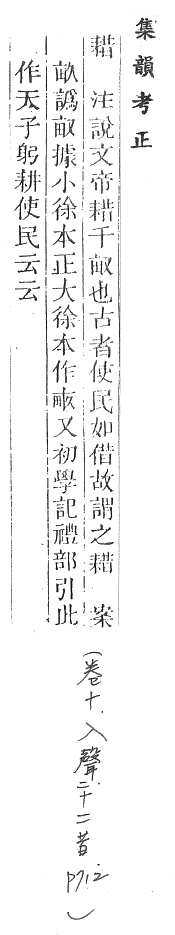 集韻考正
耤　注說文帝耤千畝也古者使民如借故謂之耤　案
畝譌畞據小徐本正大徐本作畮又初學記禮部引此
作天子躬耕使民云云
（卷十入聲二十二昔P712）